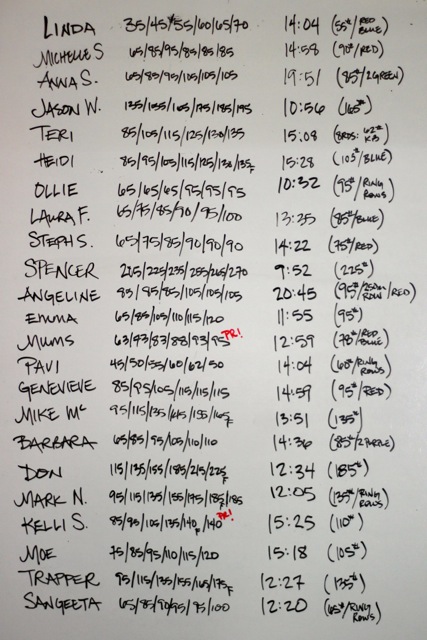 LINDA 35/45/55/60/65/70 14:04 (55#/RED BLUE)
MICHELLE S 65/85/95/85/85/85 14:58 (90#/RED)
ANNA S. 65/85/95/105/105/105 19:51 (85#/2GREEN)
JASON W. 135/155/165/175/185/195 10:56 (165#)
TERI 85/105/115/125/130/135 15:08 (8RDS: 62# KB)
HEIDI 85/95/105/115/125/130/135F 15:28 (105#/BLUE)
OLLIE 65/65/65/95/95/95 10:32 (95#/RING ROWS)
LAURA F. 65/75/85/90/95/100 13:35 (85#/BLUE)
STEPH S. 65/75/85/90/90/90 14:22 (75#/RED)
SPENCER 205/225/235/255/265/270 9:52 (225#)
ANGELINE 85/85/85/105/105/105 20:45 (95#/250m ROW/RED)
EMMA 65/85/105/110/115/120 11:55 (95#)
MUMS 63/73/83/88/93/95 PR! 12:59 (78#/RED BLUE)
PAVI 45/50/55/60/62/50 14:04 (60#/RING ROWS)
GENEVIEVE 85/95/105/115/115/115 14:59 (95#/RED)
MIKE Mc 95/115/135/145/155/165F 13:51 (135#)
BARBARA 65/85/95/105/110/110 14:36 (85#/2PURPLE)
DON 115/135/155/185/215/225F 12:34 (185#)
MARK N. 95/115/135/155/175/185F/185 12:05 (135#/RING ROWS)
KELLI S. 85/95/105/135/140F/140 PR! 15:25 (110#)
MOE 75/85/95/110/115/120 15:18 (105#)
TRAPPER 95/115/135/155/165/175F 12:27 (135#)
SANGEETA 65/85/90/95/95/100 12:20 (65#/RING ROWS)